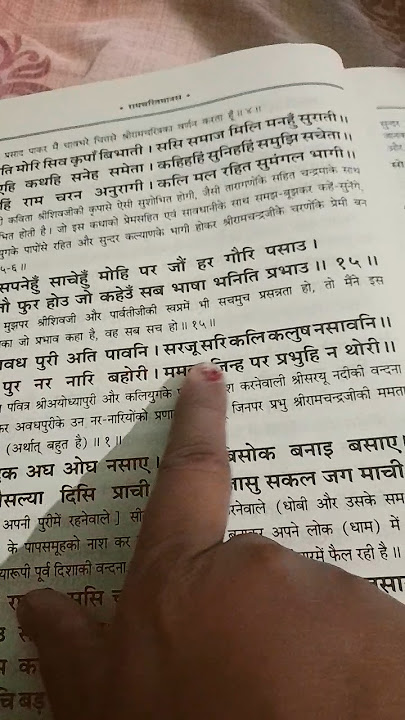 • रामचरितमानस •
प्रसाद पाकर मैं चावभरे चित्तसे श्रीरामचरित्रका वर्णन करता हूँ॥ ४॥
ति मोरि सिव कृपाँ बिभाती। ससि समाज मिलि मनहुँ सुराती॥
एहि कथहि सनेह समेता। कहिहहिं सुनिहहिं समुझि सचेता॥
हिं राम चरन अनुरागी। कलि मल रहित सुमंगल भागी॥
री कविता श्रीशिवजीकी कृपासे ऐसी सुशोभित होगी, जैसी तारागणोंके सहित चन्द्रमाके साथ
भित होती है। जो इस कथाको प्रेमसहित एवं सावधानीके साथ समझ-बूझकर कहें-सुनेंगे,
युगके पापोंसे रहित और सुन्दर कल्याणके भागी होकर श्रीरामचन्द्रजीके चरणोंके प्रेमी बन
५-६॥
सपनेहुँ साचेहुँ मोहि पर जौं हर गौरि पसाउ।
तौ फुर होउ जो कहेउँ सब भाषा भनिति प्रभाउ॥ १५॥
मुझपर श्रीशिवजी और पार्वतीजीकी स्वप्नमें भी सचमुच प्रसन्नता हो, तो मैंने इस
का जो प्रभाव कहा है, वह सब सच हो॥ १५॥
वध पुरी अति पावनि। सरजू सरि कलि कलुष नसावनि॥
पुर नर नारि बहोरी। जिन्ह पर प्रभुहि न थोरी॥
पवित्र श्रीअयोध्यापुरी और कलियुगके करनेवाली श्रीसरयू नदीकी वन्दना
कर अवधपुरीके उन नर-नारियोंको जिनपर प्रभु श्रीरामचन्द्रजीकी ममता
(अर्थात् बहुत है)॥ १॥
क अघ ओघ नसाए। बिसोक बनाइ बसाए॥
सल्या दिसि प्राची जासु सकल जग माची
अपनी पुरीमें रहनेवाले] रनेवाले (धोबी और उसके सम
के पापसमूहको नाश कर अपने लोक (धाम) में
यारूपी पूर्व दिशाकी वन्दना में फैल रही है॥
ससि
सुन्दर